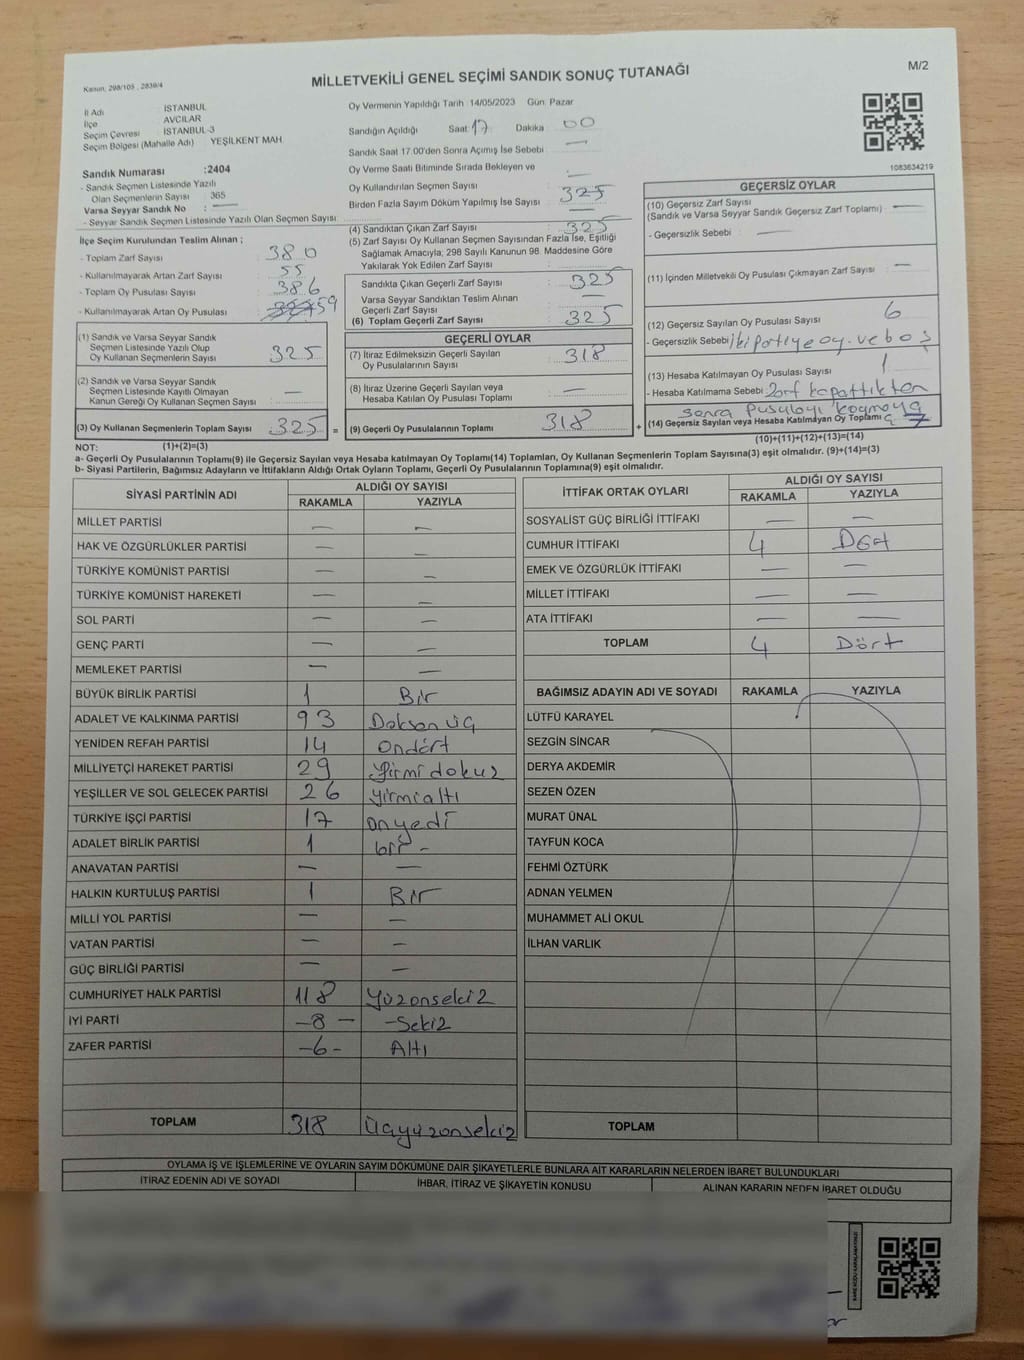 M/2
Kanun, 298/105 , 2839/4
MİLLETVEKİLİ GENEL SEÇİMİ SANDIK SONUÇ TUTANAĞI
İl Adı İSTANBUL
İlçe AVCILAR
Seçim Çevresi İSTANBUL-3
Seçim Bölgesi (Mahalle Adı) YEŞİLKENT MAH.
Sandık Numarası :2404
- Sandık Seçmen Listesinde Yazılı
Olan Seçmenlerin Sayısı 365
Varsa Seyyar Sandık No : —
- Seyyar Sandık Seçmen Listesinde Yazılı Olan Seçmen Sayısı
İlçe Seçim Kurulundan Teslim Alınan ;
- Toplam Zarf Sayısı : 380
- Kullanılmayarak Artan Zarf Sayısı : 55
- Toplam Oy Pusulası Sayısı : 386
- Kullanılmayarak Artan Oy Pusulası : 59
(1) Sandık ve Varsa Seyyar Sandık
Seçmen Listesinde Yazılı Olup
Oy Kullanan Seçmenlerin Sayısı : 325
(2) Sandık ve Varsa Seyyar Sandık
Seçmen Listesinde Kayıtlı Olmayan
Kanun Gereği Oy Kullanan Seçmen Sayısı : —
(3) Oy Kullanan Seçmenlerin Toplam Sayısı : 325 =
Oy Vermenin Yapıldığı Tarih 14/05/2023 Gün: Pazar
Sandığın Açıldığı Saat 17 Dakika 00
Sandık Saat 17.00'den Sonra Açımış İse Sebebi : —
Oy Verme Saati Bitiminde Sırada Bekleyen ve
Oy Kullandırılan Seçmen Sayısı : —
Birden Fazla Sayım Döküm Yapılmış İse Sayısı : 325
(4) Sandıktan Çıkan Zarf Sayısı : 325
(5) Zarf Sayısı Oy Kullanan Seçmen Sayısından Fazla İse, Eşitliği
Sağlamak Amacıyla; 298 Sayılı Kanunun 98. Maddesine Göre
Yakılarak Yok Edilen Zarf Sayısı
Sandıkta Çıkan Geçerli Zarf Sayısı : 325
Varsa Seyyar Sandıktan Teslim Alınan
Geçerli Zarf Sayısı : —
(6) Toplam Geçerli Zarf Sayısı : 325
GEÇERLİ OYLAR
(7) İtiraz Edilmeksizin Geçerli Sayılan
Oy Pusulalarının Sayısı : 318
(8) İtiraz Üzerine Geçerli Sayılan veya
Hesaba Katılan Oy Pusulası Toplamı : —
(9) Geçerli Oy Pusulalarının Toplamı : 318 +
1083634219
GEÇERSİZ OYLAR
(10) Geçersiz Zarf Sayısı
(Sandık ve Varsa Seyyar Sandık Geçersiz Zarf Toplamı) : —
- Geçersizlik Sebebi : —
(11) İçinden Milletvekili Oy Pusulası Çıkmayan Zarf Sayısı : —
(12) Geçersiz Sayılan Oy Pusulası Sayısı : 6
- Geçersizlik Sebebi : iki partiye oy. ve boş
(13) Hesaba Katılmayan Oy Pusulası Sayısı : 1
- Hesaba Katılmama Sebebi : Zarf kapattıktan
sonra pusulayı koymaya
(14) Geçersiz Sayılan veya Hesaba Katılmayan Oy Toplamı : 7
(10)+(11)+(12)+(13)=(14)
NOT: (1)+(2)=(3)
a- Geçerli Oy Pusulalarının Toplamı(9) ile Geçersiz Sayılan veya Hesaba katılmayan Oy Toplamı(14) Toplamları, Oy Kullanan Seçmenlerin Toplam Sayısına(3) eşit olmalıdır. (9)+(14)=(3)
b- Siyasi Partilerin, Bağımsız Adayların ve İttifakların Aldığı Ortak Oyların Toplamı, Geçerli Oy Pusulalarının Toplamına(9) eşit olmalıdır.
SİYASİ PARTİNİN ADI ALDIĞI OY SAYISI
RAKAMLA YAZIYLA
MİLLET PARTİSİ — —
HAK VE ÖZGÜRLÜKLER PARTİSİ — —
TÜRKİYE KOMÜNİST PARTİSİ — —
TÜRKİYE KOMÜNİST HAREKETİ — —
SOL PARTİ — —
GENÇ PARTİ — —
MEMLEKET PARTİSİ — —
BÜYÜK BİRLİK PARTİSİ 1 Bir
ADALET VE KALKINMA PARTİSİ 93 Doksan üç
YENİDEN REFAH PARTİSİ 14 Ondört
MİLLİYETÇİ HAREKET PARTİSİ 29 Yirmi dokuz
YEŞİLLER VE SOL GELECEK PARTİSİ 26 yirmialtı
TÜRKİYE İŞÇİ PARTİSİ 17 onyedi
ADALET BİRLİK PARTİSİ 1 bir -
ANAVATAN PARTİSİ — —
HALKIN KURTULUŞ PARTİSİ 1 Bir
MİLLİ YOL PARTİSİ — —
VATAN PARTİSİ — —
GÜÇ BİRLİĞİ PARTİSİ — —
CUMHURİYET HALK PARTİSİ 118 Yüzonsekiz
İYİ PARTİ -8- -Sekiz
ZAFER PARTİSİ -6- Altı
TOPLAM 318 Üçyüzonsekiz
İTTİFAK ORTAK OYLARI ALDIĞI OY SAYISI
RAKAMLA YAZIYLA
SOSYALİST GÜÇ BİRLİĞİ İTTİFAKI — —
CUMHUR İTTİFAKI 4
EMEK VE ÖZGÜRLÜK İTTİFAKI — —
MİLLET İTTİFAKI — —
ATA İTTİFAKI — —
TOPLAM 4 Dört
BAĞIMSIZ ADAYIN ADI VE SOYADI RAKAMLA YAZIYLA
LÜTFÜ KARAYEL
SEZGİN SİNCAR
DERYA AKDEMİR
SEZEN ÖZEN
MURAT ÜNAL
TAYFUN KOCA
FEHMİ ÖZTÜRK
ADNAN YELMEN
MUHAMMET ALİ OKUL
İLHAN VARLIK
TOPLAM
OYLAMA İŞ VE İŞLEMLERİNE VE OYLARIN SAYIM DÖKÜMÜNE DAİR ŞİKAYETLERLE BUNLARA AİT KARARLARIN NELERDEN İBARET BULUNDUKLARI
İTİRAZ EDENİN ADI VE SOYADI İHBAR, İTİRAZ VE ŞİKAYETİN KONUSU ALINAN KARARIN NEDEN İBARET OLDUĞU